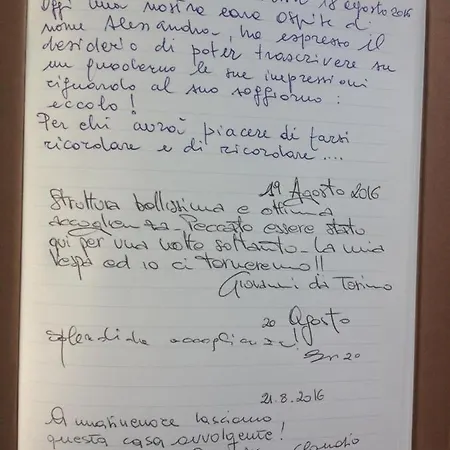 18 agosto 2016
Oggi una nostra cara ospite di
nome Alessandra, ha espresso il
desiderio di poter trascrivere su
un quaderno le sue impressioni
riguardo al suo soggiorno:
eccolo!
Per chi avrà piacere di farsi
ricordare e di ricordare....
19 Agosto 2016
Struttura bellissima e ottima
accoglienza. Peccato essere stato
qui per una volta soltanto. La mia
Vespa ed io ci torneremo!!
Giovanni da Torino
20 Agosto
Splendida accoglienza!
21.8.2016
A malincuore lasciamo
questa casa avvolgente!
Claudio